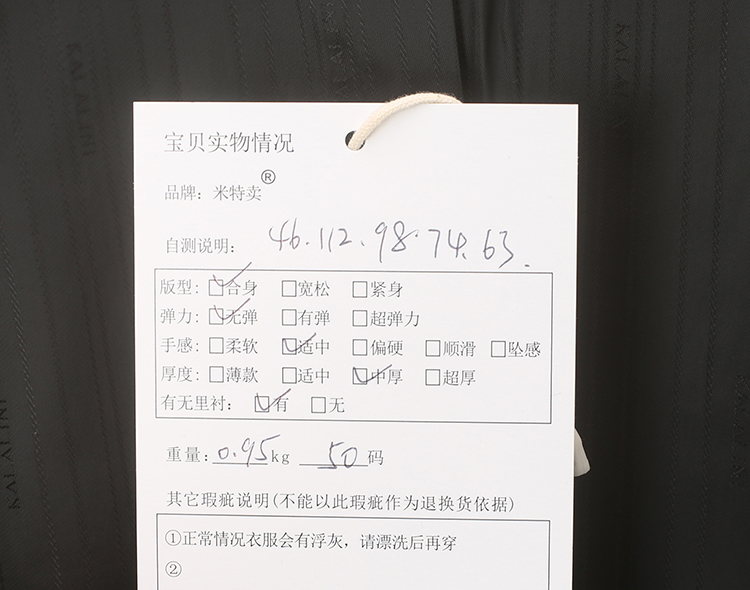 宝贝实物情况
品牌：米特卖®
自测说明： 46.112.98.74.63.
版型: ☑合身 □宽松 □紧身
弹力: ☑无弹 □有弹 □超弹力
手感: □柔软 ☑适中 □偏硬 □顺滑 □坠感
厚度: □薄款 □适中 ☑中厚 □超厚
有无里衬： ☑有 □无
重量:0.95kg 50码
其它瑕疵说明(不能以此瑕疵作为退换货依据)
①正常情况衣服会有浮灰，请漂洗后再穿
②